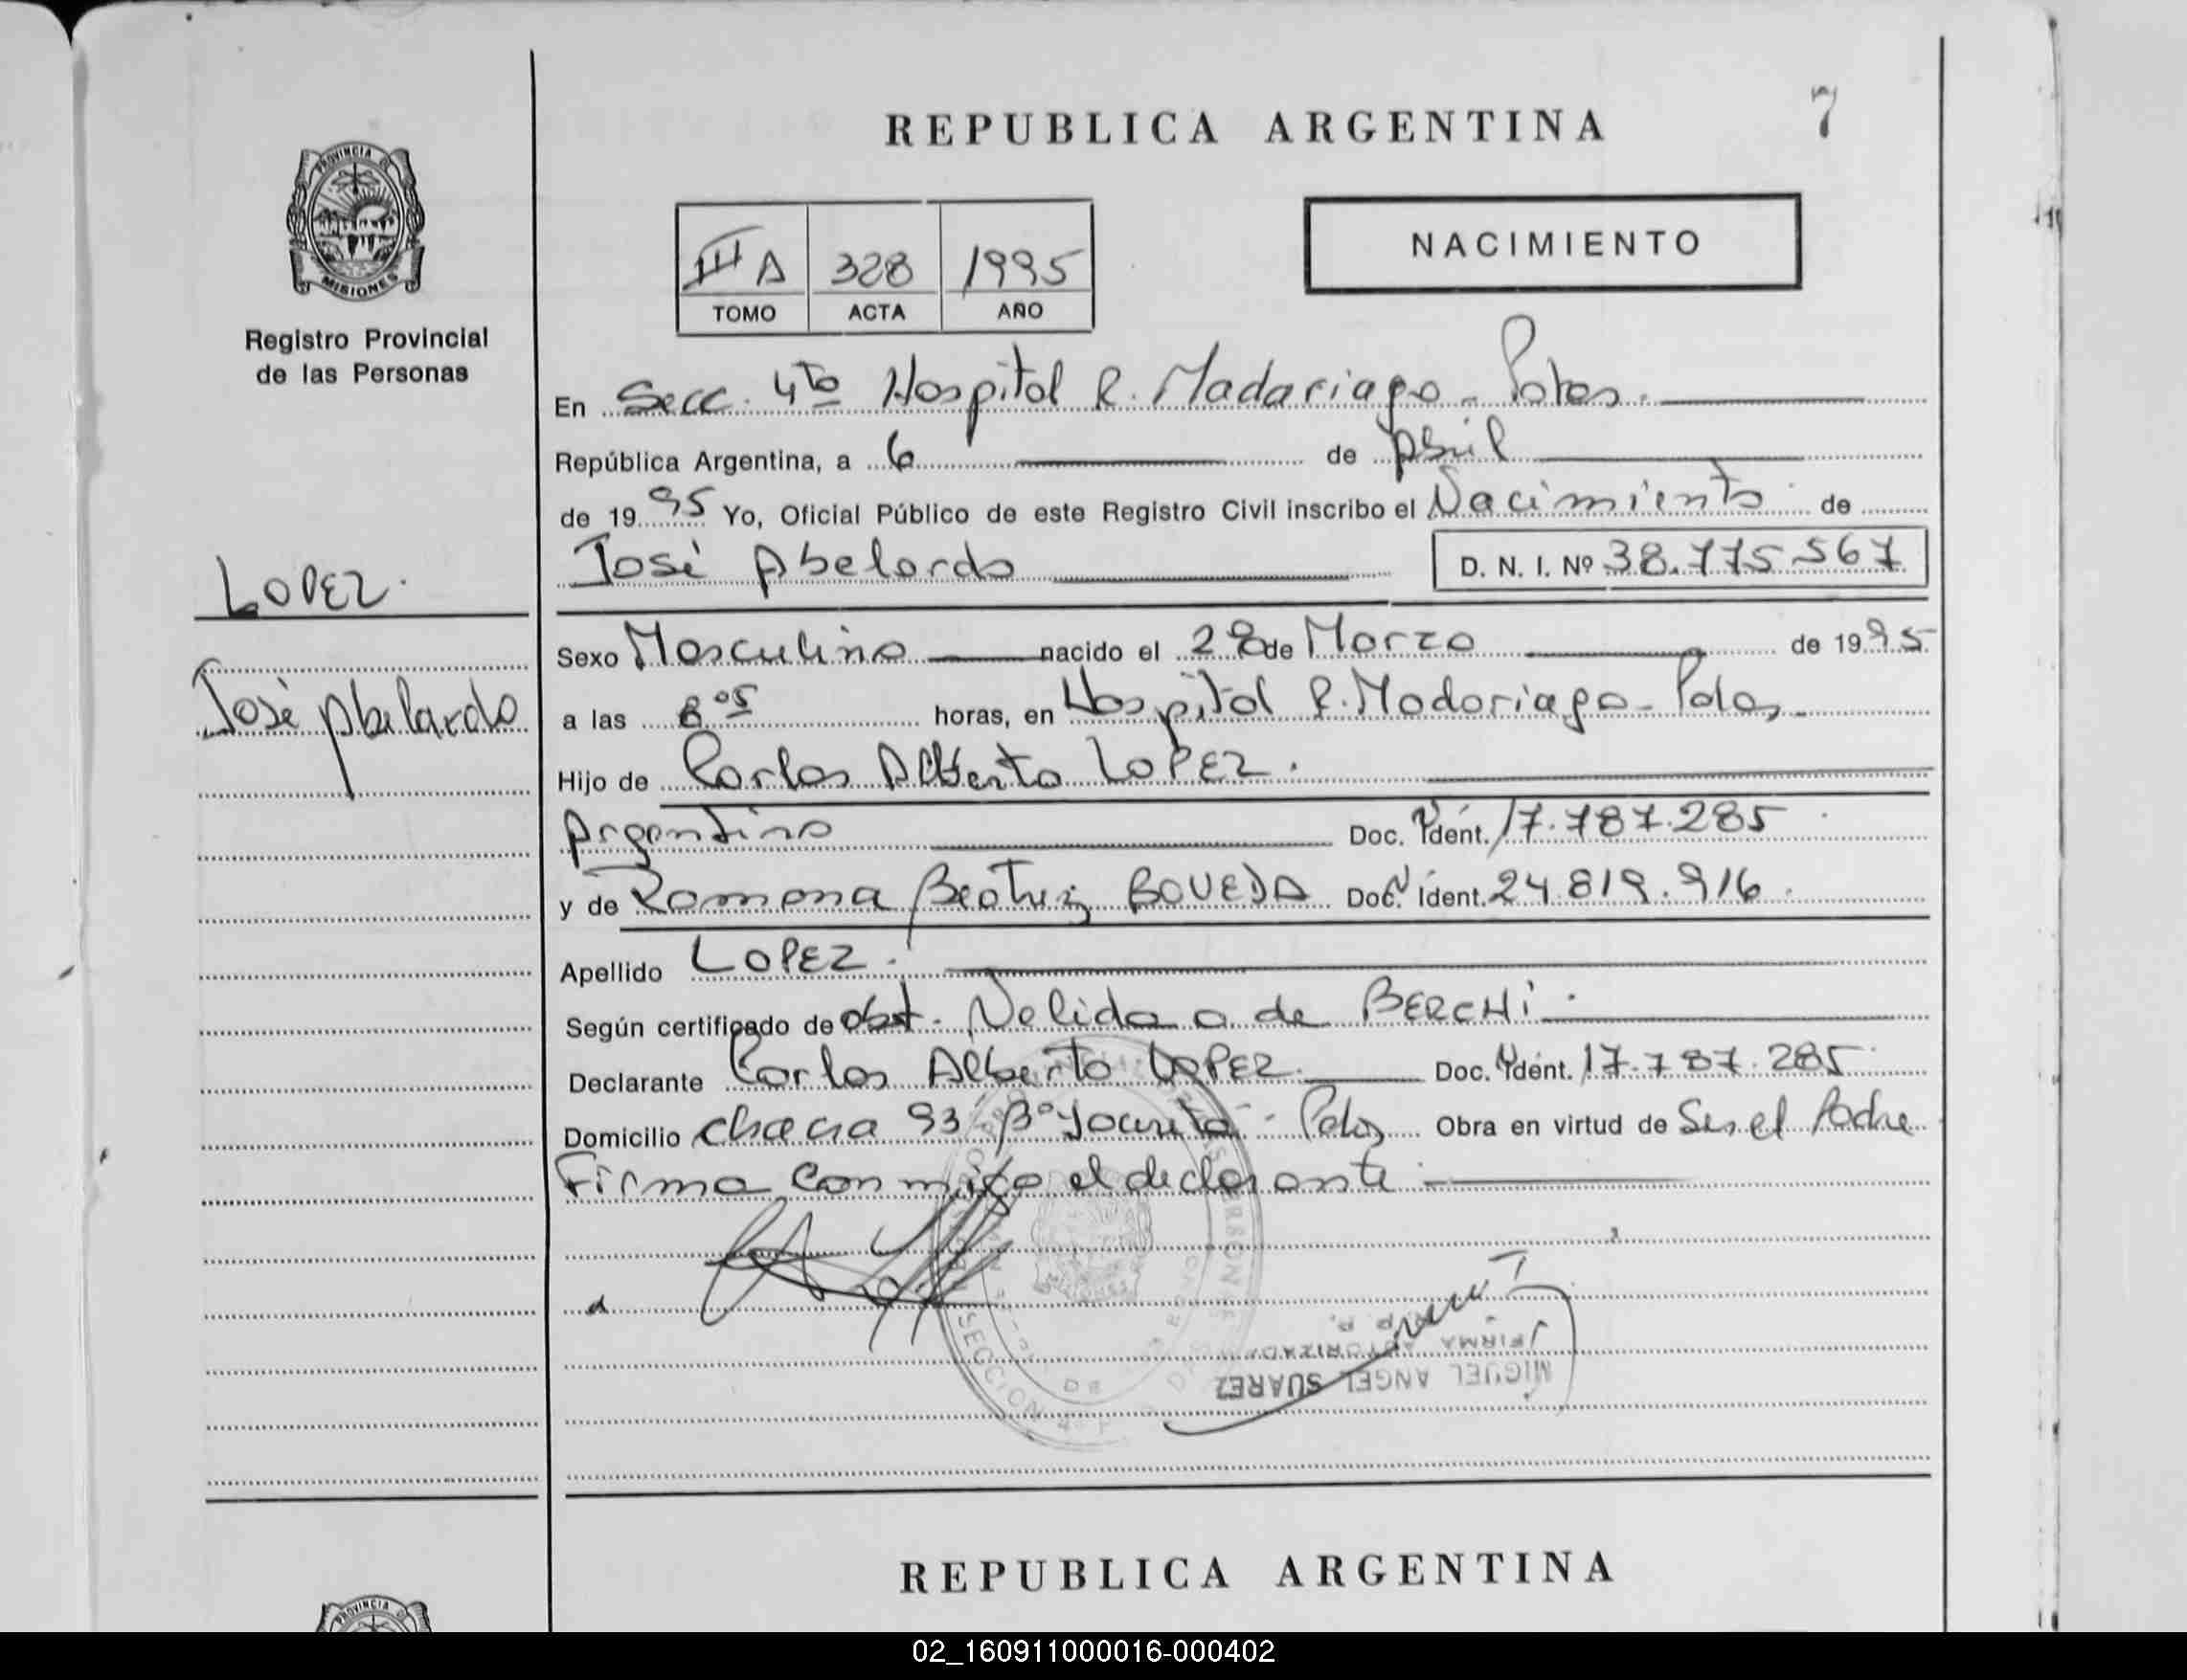 REPUBLICA ARGENTINA
7
PROVINCIA DE
MISIONES
Registro Provincial
de las Personas
III A 328 1995
TOMO ACTA AÑO
NACIMIENTO
En Secc. 4to Hospital R. Madariaga - Pdas.
República Argentina, a 6 de Abril
de 1995 Yo, Oficial Público de este Registro Civil inscribo el Nacimiento de
José Abelardo D. N. I. Nº 38.775.567
LOPEZ.
José Abelardo
Sexo Masculino nacido el 28 de Marzo de 1995
a las 8 05 horas, en Hospital R. Madariaga - Pdas.
Hijo de Carlos Alberto LOPEZ.
Argentino Doc. Ident. 17.787.285
y de Ramona Beatriz BOVEDA Doc. Ident. 24.819.916.
Apellido LOPEZ.
Según certificado de obst. Nelida a de BERCHI.
Declarante Carlos Alberto LOPEZ. Doc. Ident. 17.787.285
Domicilio chacra 93 Bº Yacyretá - Pdas Obra en virtud de Ser el Padre
Firma conmigo el declarante
MIGUEL ANGEL SUAREZ
FIRMA AUTORIZADA
SECCION 4
REPUBLICA ARGENTINA
PROVINCIA DE
02_160911000016-000402